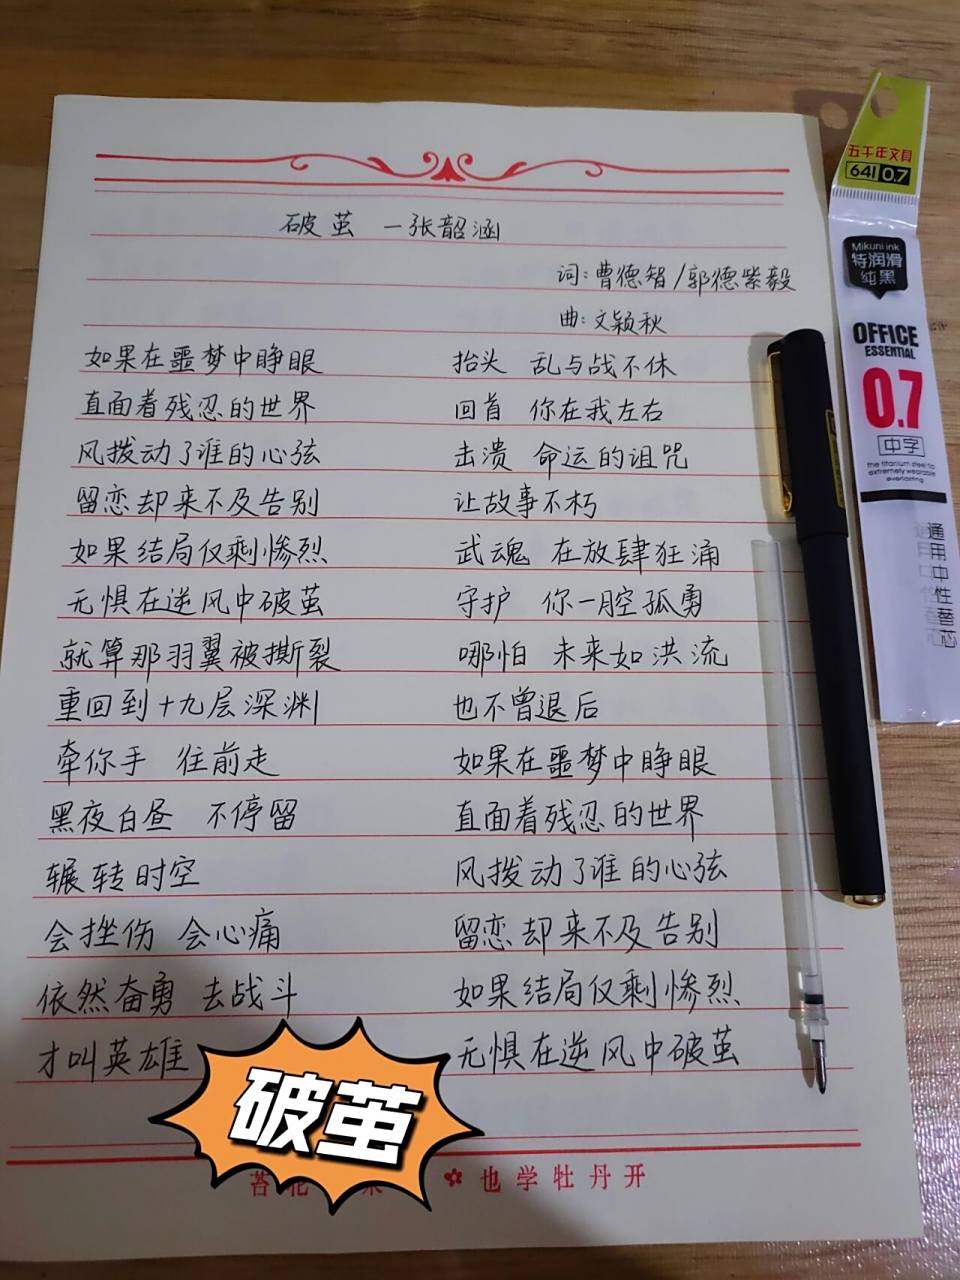 破茧 一张韶涵
词:曹德智/郭德紫毅
曲:文颖秋
如果在噩梦中睁眼
直面着残忍的世界
风拨动了谁的心弦
留恋却来不及告别
如果结局仅剩惨烈
无惧在逆风中破茧
就算那羽翼被撕裂
重回到十九层深渊
牵你手 往前走
黑夜白昼 不停留
辗转时空
会挫伤 会心痛
依然奋勇 去战斗
才叫英雄
抬头 乱与战不休
回首 你在我左右
击溃 命运的诅咒
让故事不朽
武魂 在放肆狂涌
守护 你一腔孤勇
哪怕 未来如洪流
也不曾退后
如果在噩梦中睁眼
直面着残忍的世界
风拨动了谁的心弦
留恋却来不及告别
如果结局仅剩惨烈
无惧在逆风中破茧
破茧
苔花 米 也学牡丹开
五千年文具
641 0.7
Mikuni ink
特润滑
纯黑
OFFICE
ESSENTIAL
0.7
中字
the titanium steel to
extremely wearable
everlasting
通用中性替芯